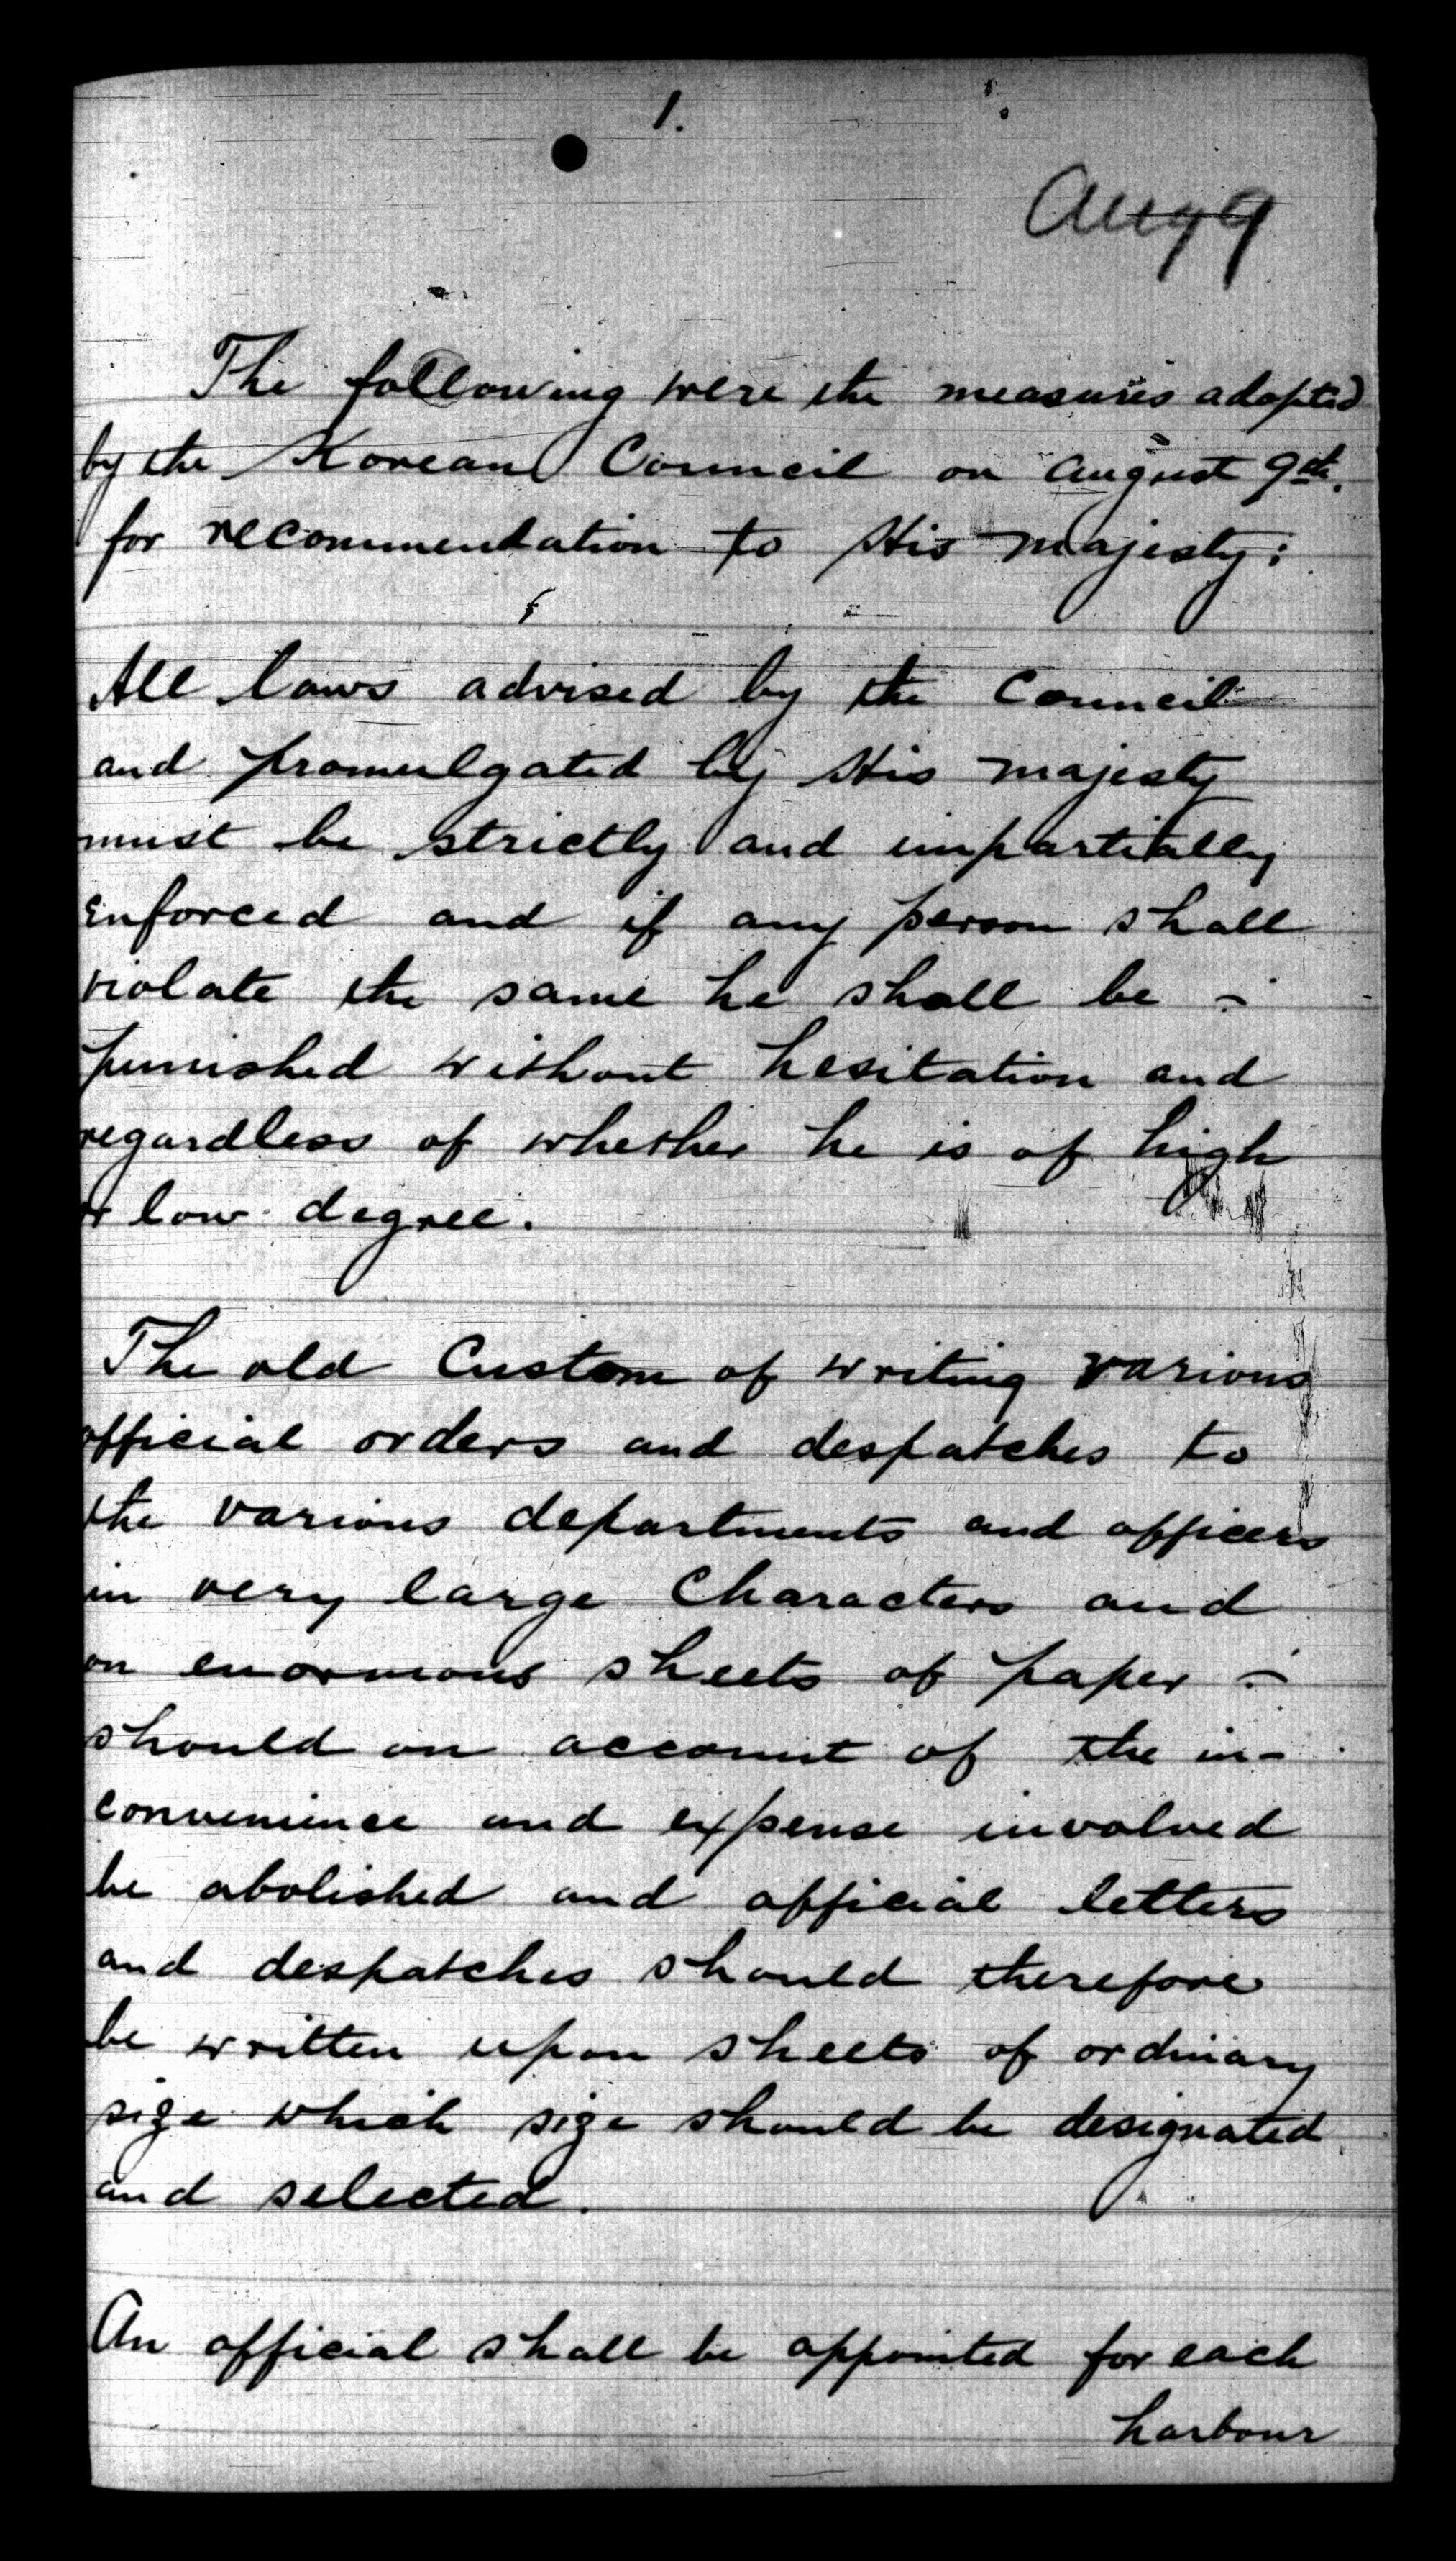 1.
Aug 9
The following were the measures adopted
by the Korean Council on August 9th.
for recommendation to His Majesty:
All laws advised by the Council
and promulgated by His Majesty
must be strictly and impartially
enforced and if any person shall
violate the same he shall be -
punished without hesitation and
regardless of whether he is of high
or low degree.
The old Custom of writing various
official orders and despatches to
the various departments and officers
in very large Characters and
on enormous sheets of paper -
should on account of the in-
convenience and expense involved
be abolished and official letters
and despatches should therefore
be written upon sheets of ordinary
size which size should be designated
and selected.
An official shall be appointed for each
harbour